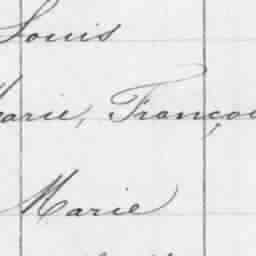 Louis
Marie, Franço
Marie